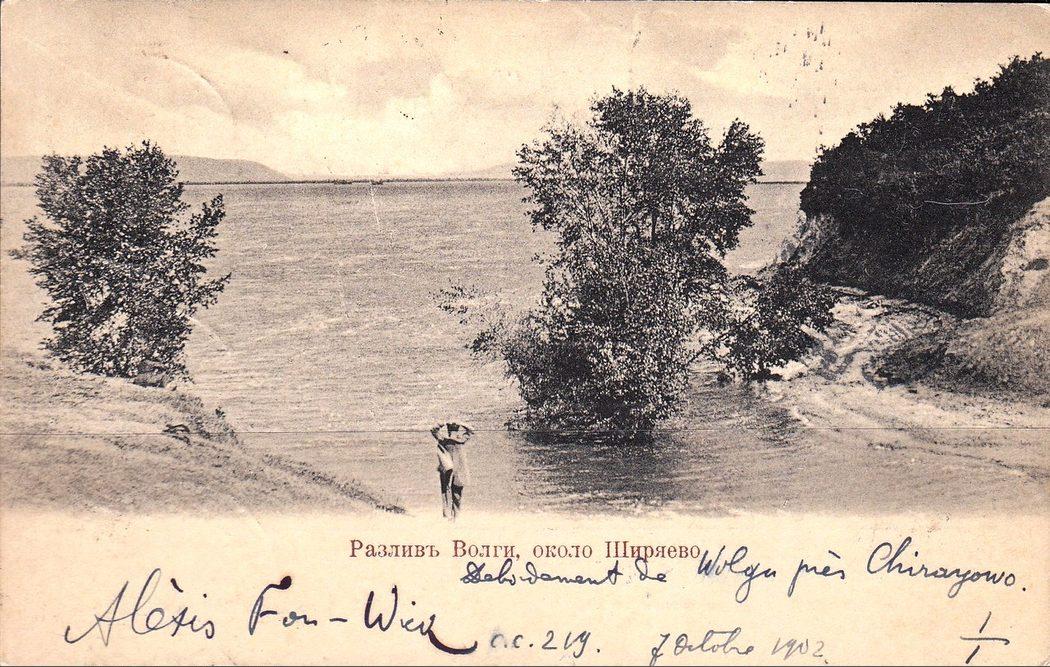 Разливъ Волги, около Ширяево
Debordement de Wolga près Chirayowo.
Alèxis Fon-Wick c.c. 219. 7 Octobre 1902
1/1